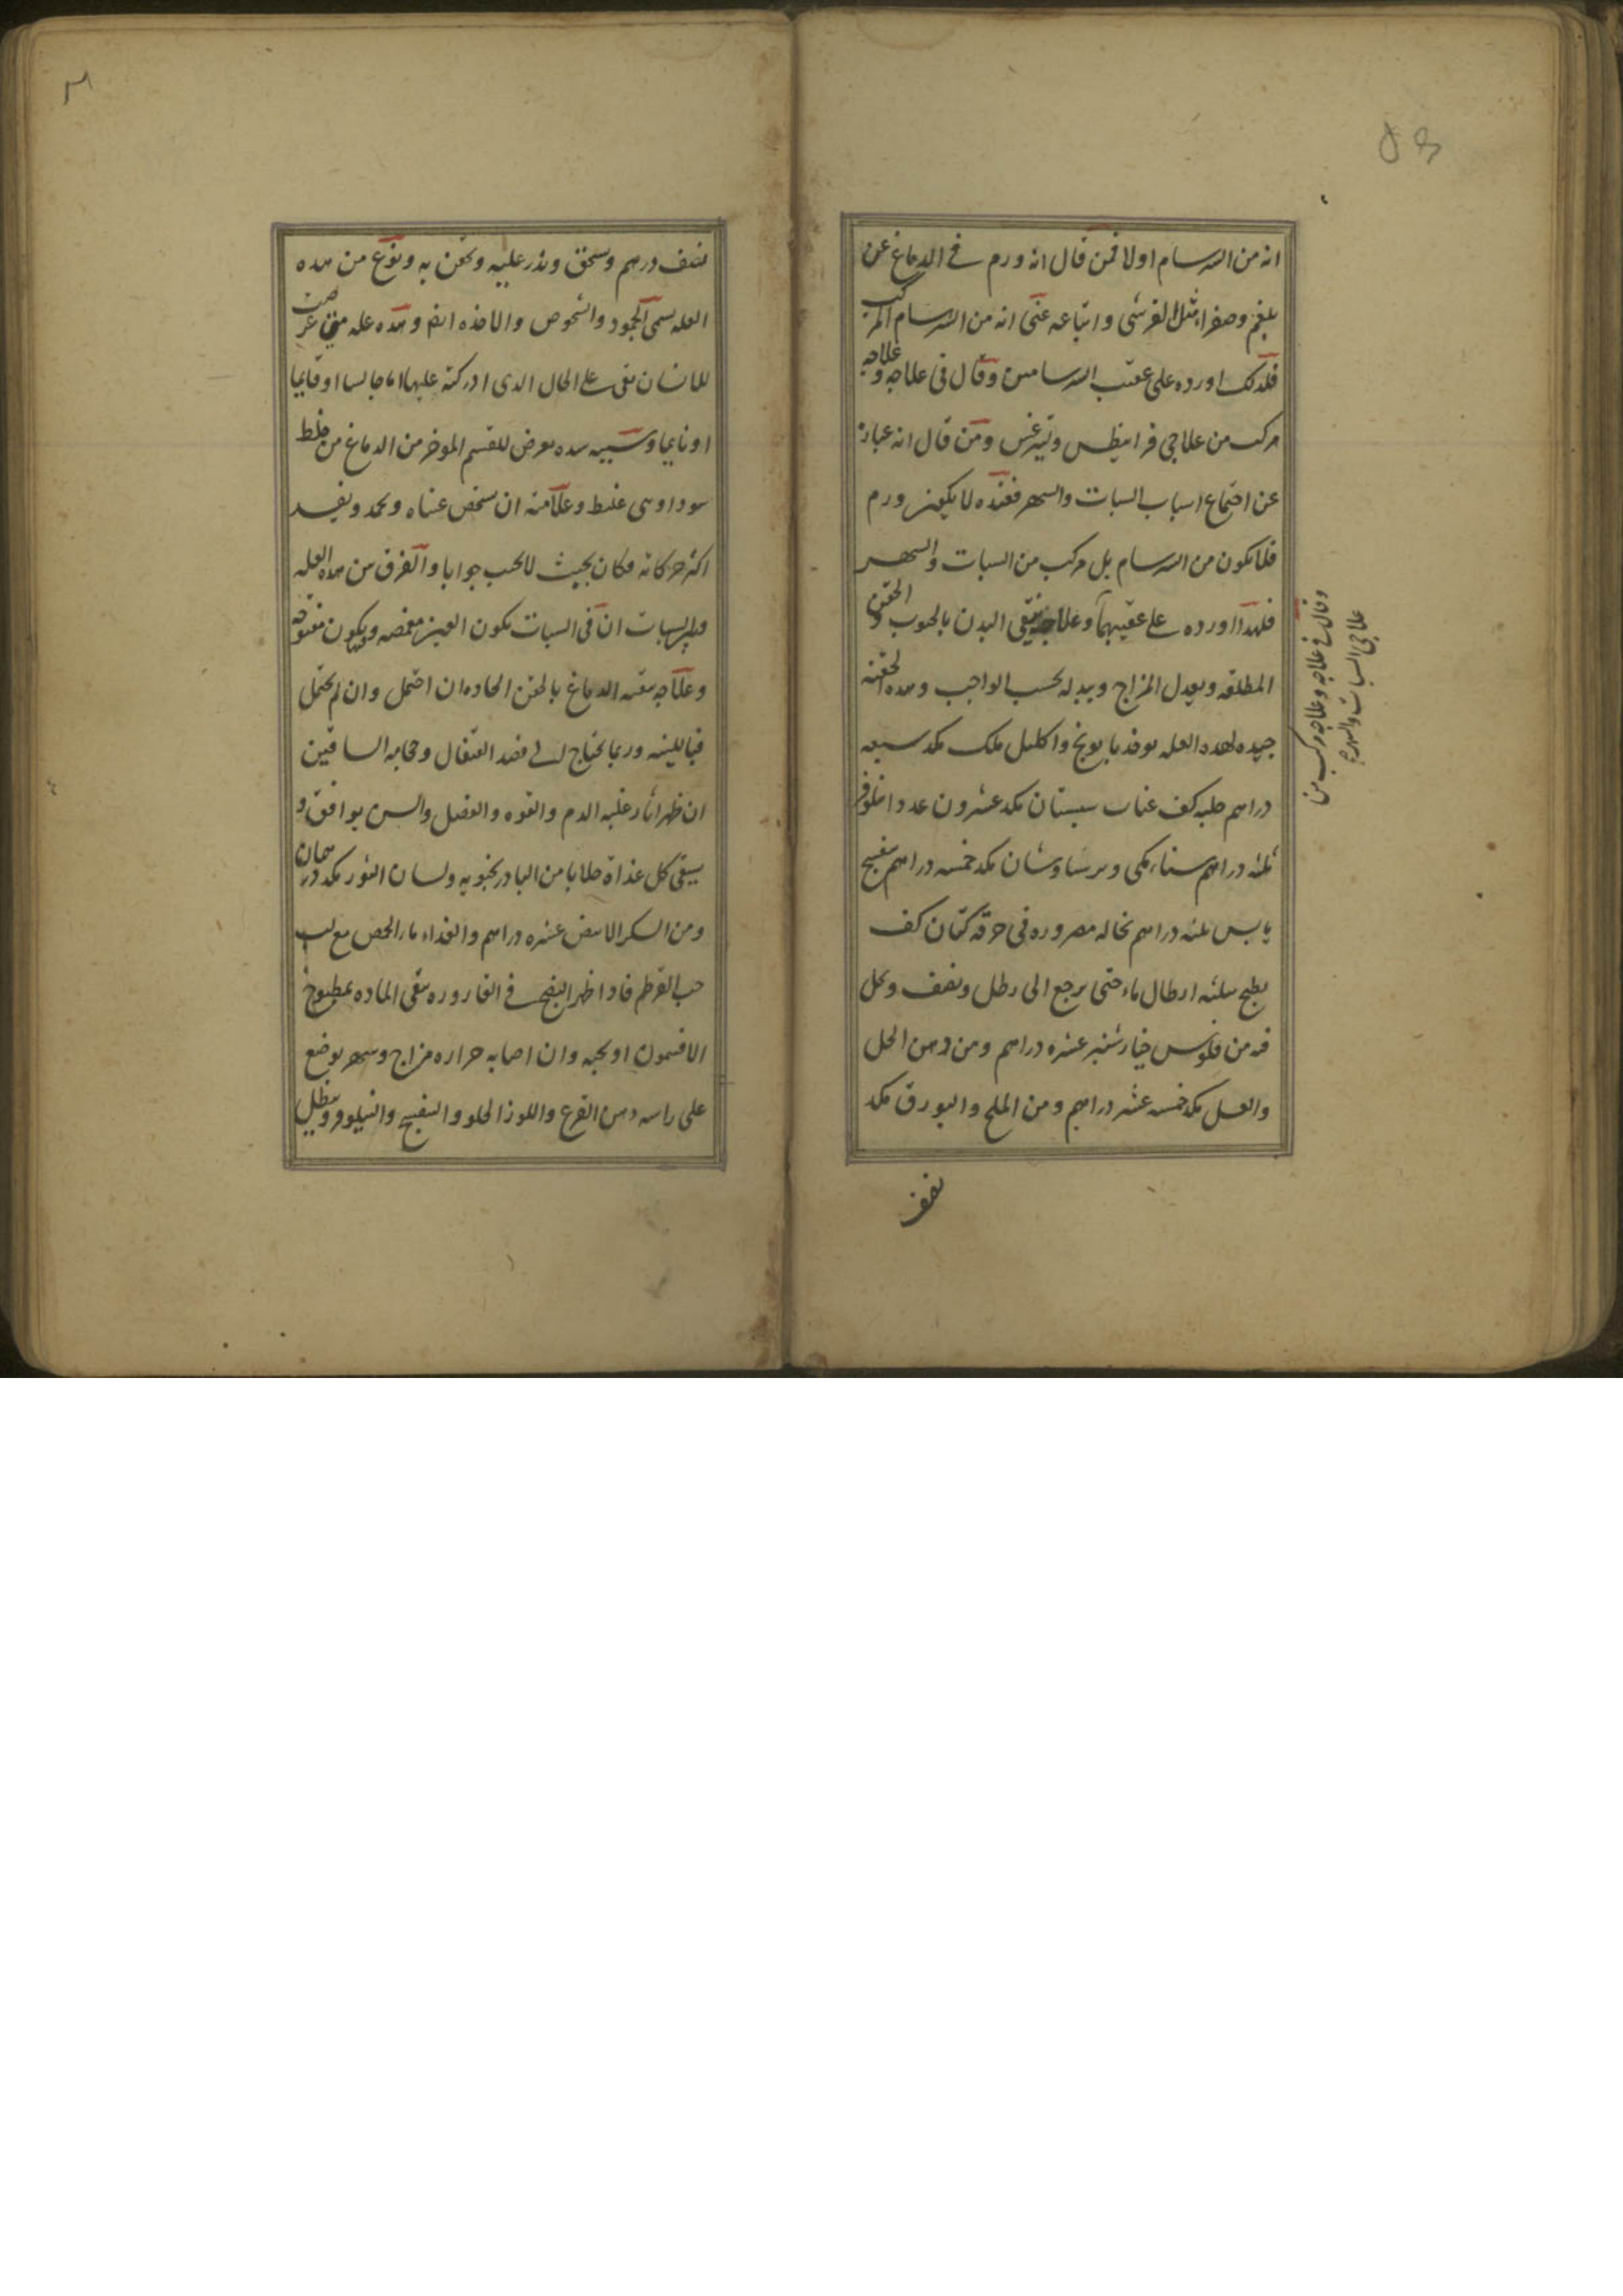 انه من السرسام اولا فمن قال انه ورم في الدماغ عن
بلغم وصفراء مثل القرشى واتباعه عنى انه من السرسام المركب
فلذلك اورده على عقب السرسامين وقال فى علاجه وعلاجه
مركب من علاجى فرانيطس وليثرغس ومن قال انه عبارة
عن اجتماع اسباب السبات والسهر فعنده لا يكون ورم
فلا يكون من السرسام بل مركب من السبات والسهر
فلهذا اورده على عقيبهما وعلاجه ينقى البدن بالحبوب والحقن
المطلقه ويعدل المزاج ويبدله بحسب الواجب وهذه الحقنه
جيده لهذه العله يوخذ بابونج واكليل ملك مكد سبعه
دراهم حلبه كف عناب سبستان مكد عشرون عددا نيلوفر
ثلثه دراهم سناء مكى وبرسياوشان مكد خمسه دراهم بنفسج
يابس ثلثه دراهم نخاله مصروره فى خرقة كتان كف
يطبخ بثلثه ارطال ماء حتى يرجع الى رطل ونصف ويحل
فيه من فلوس خيارشنبر عشره دراهم ومن دهن الحل
والعسل مكد خمسه عشر دراهم ومن الملح والبورق مكد
نصف
وقال في علاجه وعلاجه مركب من
علاجى السبات والسهر
نصف درهم ويسحق ويذر عليه ويحقن به ونوع من هذه
العله يسمى الجمود والشخوص والاخذه ايضا وهذه عله متى عرضت
للانسان بقى على الحال الذى ادركته عليها اما جالسا او قايما
او نايما وسببه سده تعرض للقسم الموخر من الدماغ من خلط
سوداوى غليظ وعلامته ان يشخص عيناه ويجمد ويفسد
اكثر حركاته وكان بحيث لا يجيب جوابا والفرق بين هذه العله
وبين السبات ان فى السبات يكون العين مغمضه ويكون مفتوحه
وعلاجه تنقيه الدماغ بالحقن الحاده ان احتمل وان لم يحتمل
فبالليّنه وربما يحتاج الى فصد القيفال وحجامه الساقين
ان ظهر اثار غلبه الدم والقوه والفصل والسن يوافق و
يسقى كل غداة جلابا من البادرنجبويه ولسان الثور مكد درهمان
ومن السكر الابيض عشره دراهم والغذاء ماء الحمص مع لب
حب القرطم فاذا ظهر النضج في القاروره ينقى الماده بمطبوخ
الافتيمون او بحبه وان اصابه حراره مزاج وسهر يوضع
على راسه دهن القرع واللوز الحلو والبنفسج والنيلوفر وينطل